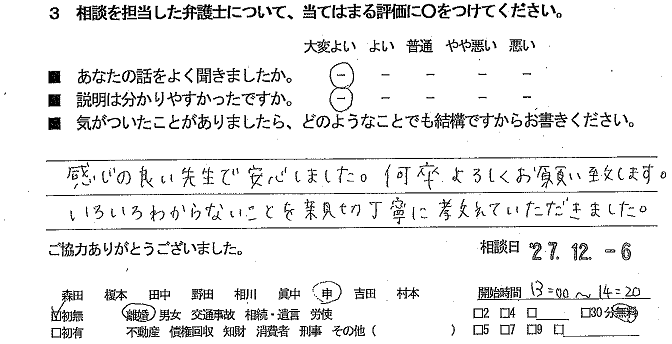 3 相談を担当した弁護士について、当てはまる評価に〇をつけてください。
大変よい よい 普通 やや悪い 悪い
■ あなたの話をよく聞きましたか。 － － － － －
■ 説明は分かりやすかったですか。 － － － － －
■ 気がついたことがありましたら、どのようなことでも結構ですからお書きください。
感じの良い先生で安心しました。何卒よろしくお願い致します。
いろいろわからないことを親切丁寧に教えていただきました。
ご協力ありがとうございました。 相談日 27.12.-6
森田 榎本 田中 野田 相川 眞中 申 吉田 村本 開始時間 13=00～14=20
☑初無 離婚 男女 交通事故 相続・遺言 労使 □2 □4 □ □30分無料
□初有 不動産 債権回収 知財 消費者 刑事 その他（ ） □5 □7 □9 □